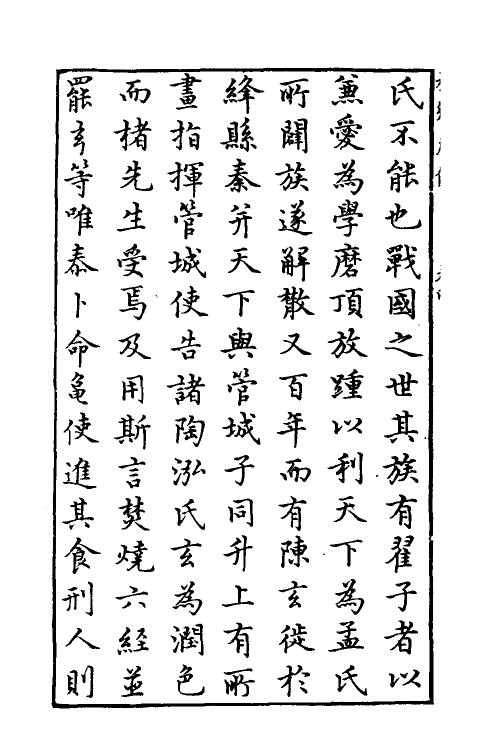 氏不能也戰國之世其族有翟子者以
兼愛為學磨頂放踵以利天下為孟氏
所闢族遂解散又百年而有陳玄徙於
絳縣秦并天下與管城子同升上有所
畫指揮管城使告諸陶泓氏玄為潤色
而楮先生受焉及用斯言焚燒六經並
罷玄等唯泰卜命黽使進其食刑人則